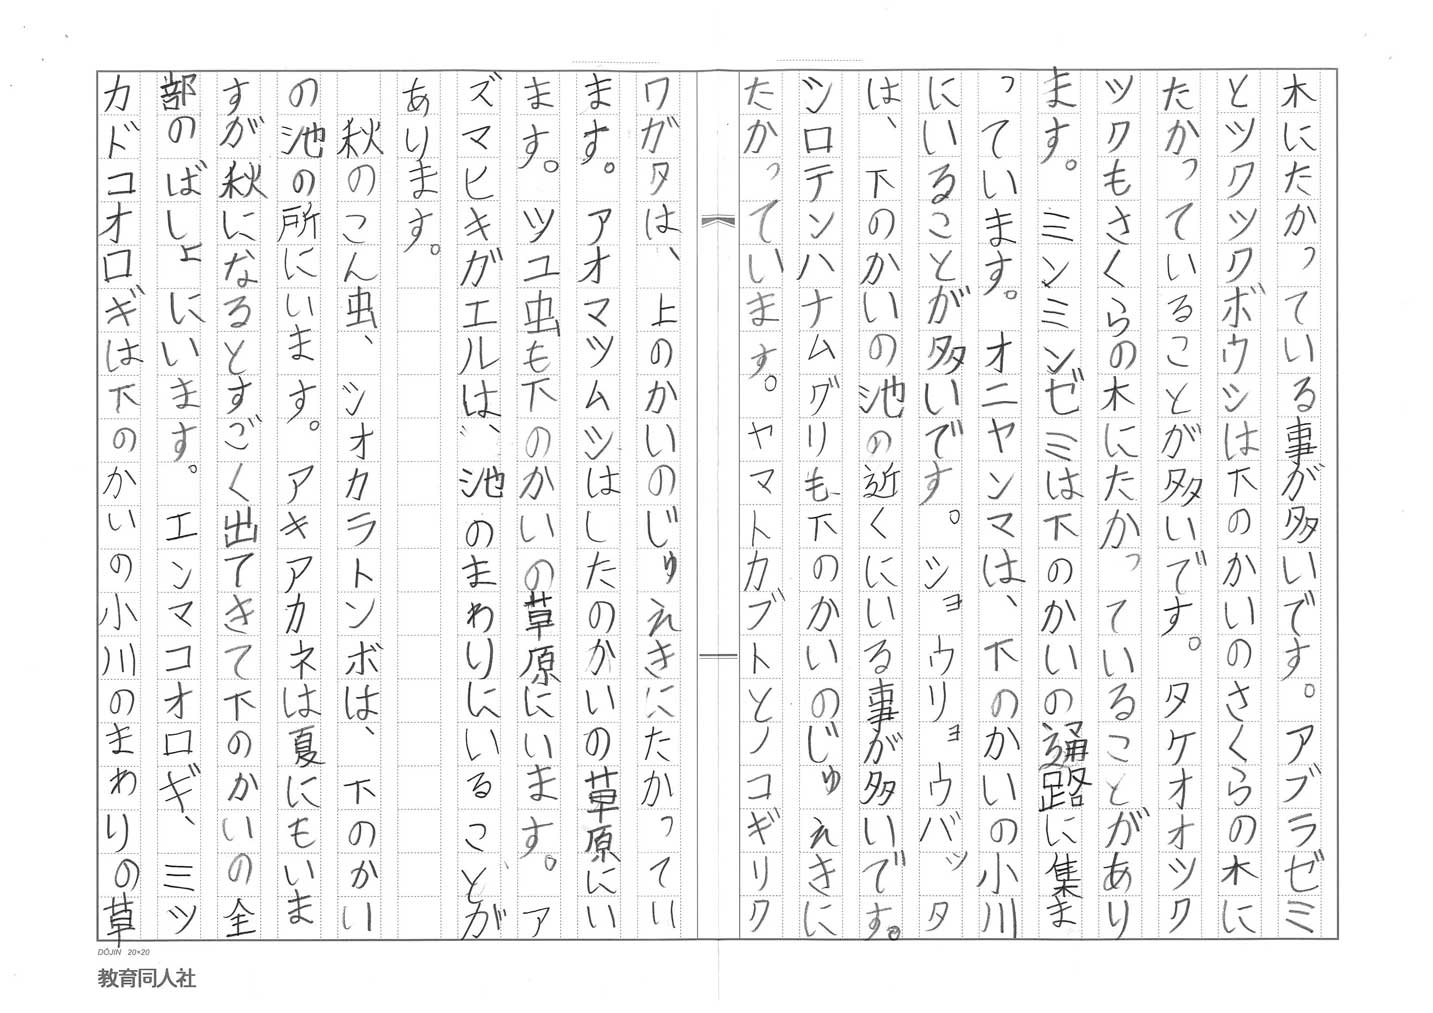 木にたかっている事が多いです。アブラゼミ
とツクツクボウシは下のかいのさくらの木に
たかっていることが多いです。タケオオツク
ツクもさくらの木にたかっていることがあり
ます。ミンミンゼミは下のかいの通路に集ま
っています。オニヤンマは、下のかいの小川
にいることが多いです。ショウリョウバッタ
は、下のかいの池の近くにいる事が多いです。
シロテンハナムグリも下のかいのじゅえきに
たかっています。ヤマトカブトとノコギリク
ワガタは、上のかいのじゅえきにたかってい
ます。アオマツムシはしたのかいの草原にい
ます。ツユ虫も下のかいの草原にいます。ア
ズマヒキガエルは、池のまわりにいることが
あります。
秋のこん虫、シオカラトンボは、下のかい
の池の所にいます。アキアカネは夏にもいま
すが秋になるとすごく出てきて下のかいの全
部のばしょにいます。エンマコオロギ、ミツ
カドコオロギは下のかいの小川のまわりの草
DŌJIN 20×20
教育同人社